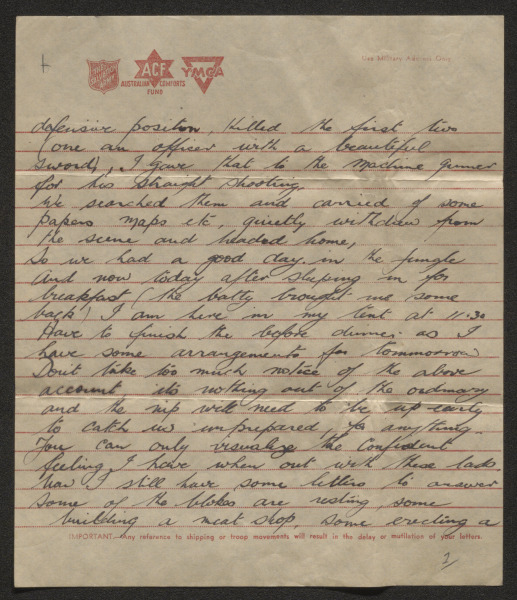 THE SALVATION ARMY
ACF
AUSTRALIAN COMFORTS
FUND
YMCA
Use Military Address Only
defensive position, killed the first two
(one an officer with a beautiful
sword), I gave that to the machine gunner
for his straight shooting.
We searched them and carried of some
papers maps etc, quietly withdrew from
the scene and headed home,
So we had a good day in the jungle
And now today after sleeping in for
breakfast (the batty brought me some
back) I am here in my tent at 11.30
Have to finish the before dinner as I
have some arrangements for tommorrow
Don't take too much notice of the above
account its nothing out of the ordinary
and the nip will need to be up early
to catch us unprepared, for anything.
You can only visualize the confident
feeling I have when out with these lads.
Now I still have some letters to answer
some of the blokes are resting some
building a meat shop, some erecting a
IMPORTANT.—Any reference to shipping or troop movements will result in the delay or mutilation of your letters.